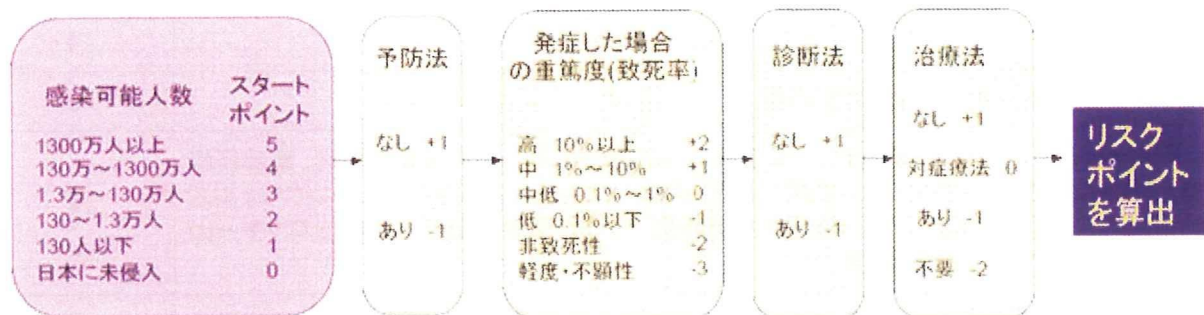 感染可能人数 スタートポイント
1300万人以上 5
130万～1300万人 4
1.3万～130万人 3
130～1.3万人 2
130人以下 1
日本に未侵入 0
予防法
なし +1
あり -1
発症した場合
の重篤度(致死率)
高 10%以上 +2
中 1%～10% +1
中低 0.1%～1% 0
低 0.1%以下 -1
非致死性 -2
軽度・不顕性 -3
診断法
なし +1
あり -1
治療法
なし +1
対症療法 0
あり -1
不要 -2
リスク
ポイント
を算出